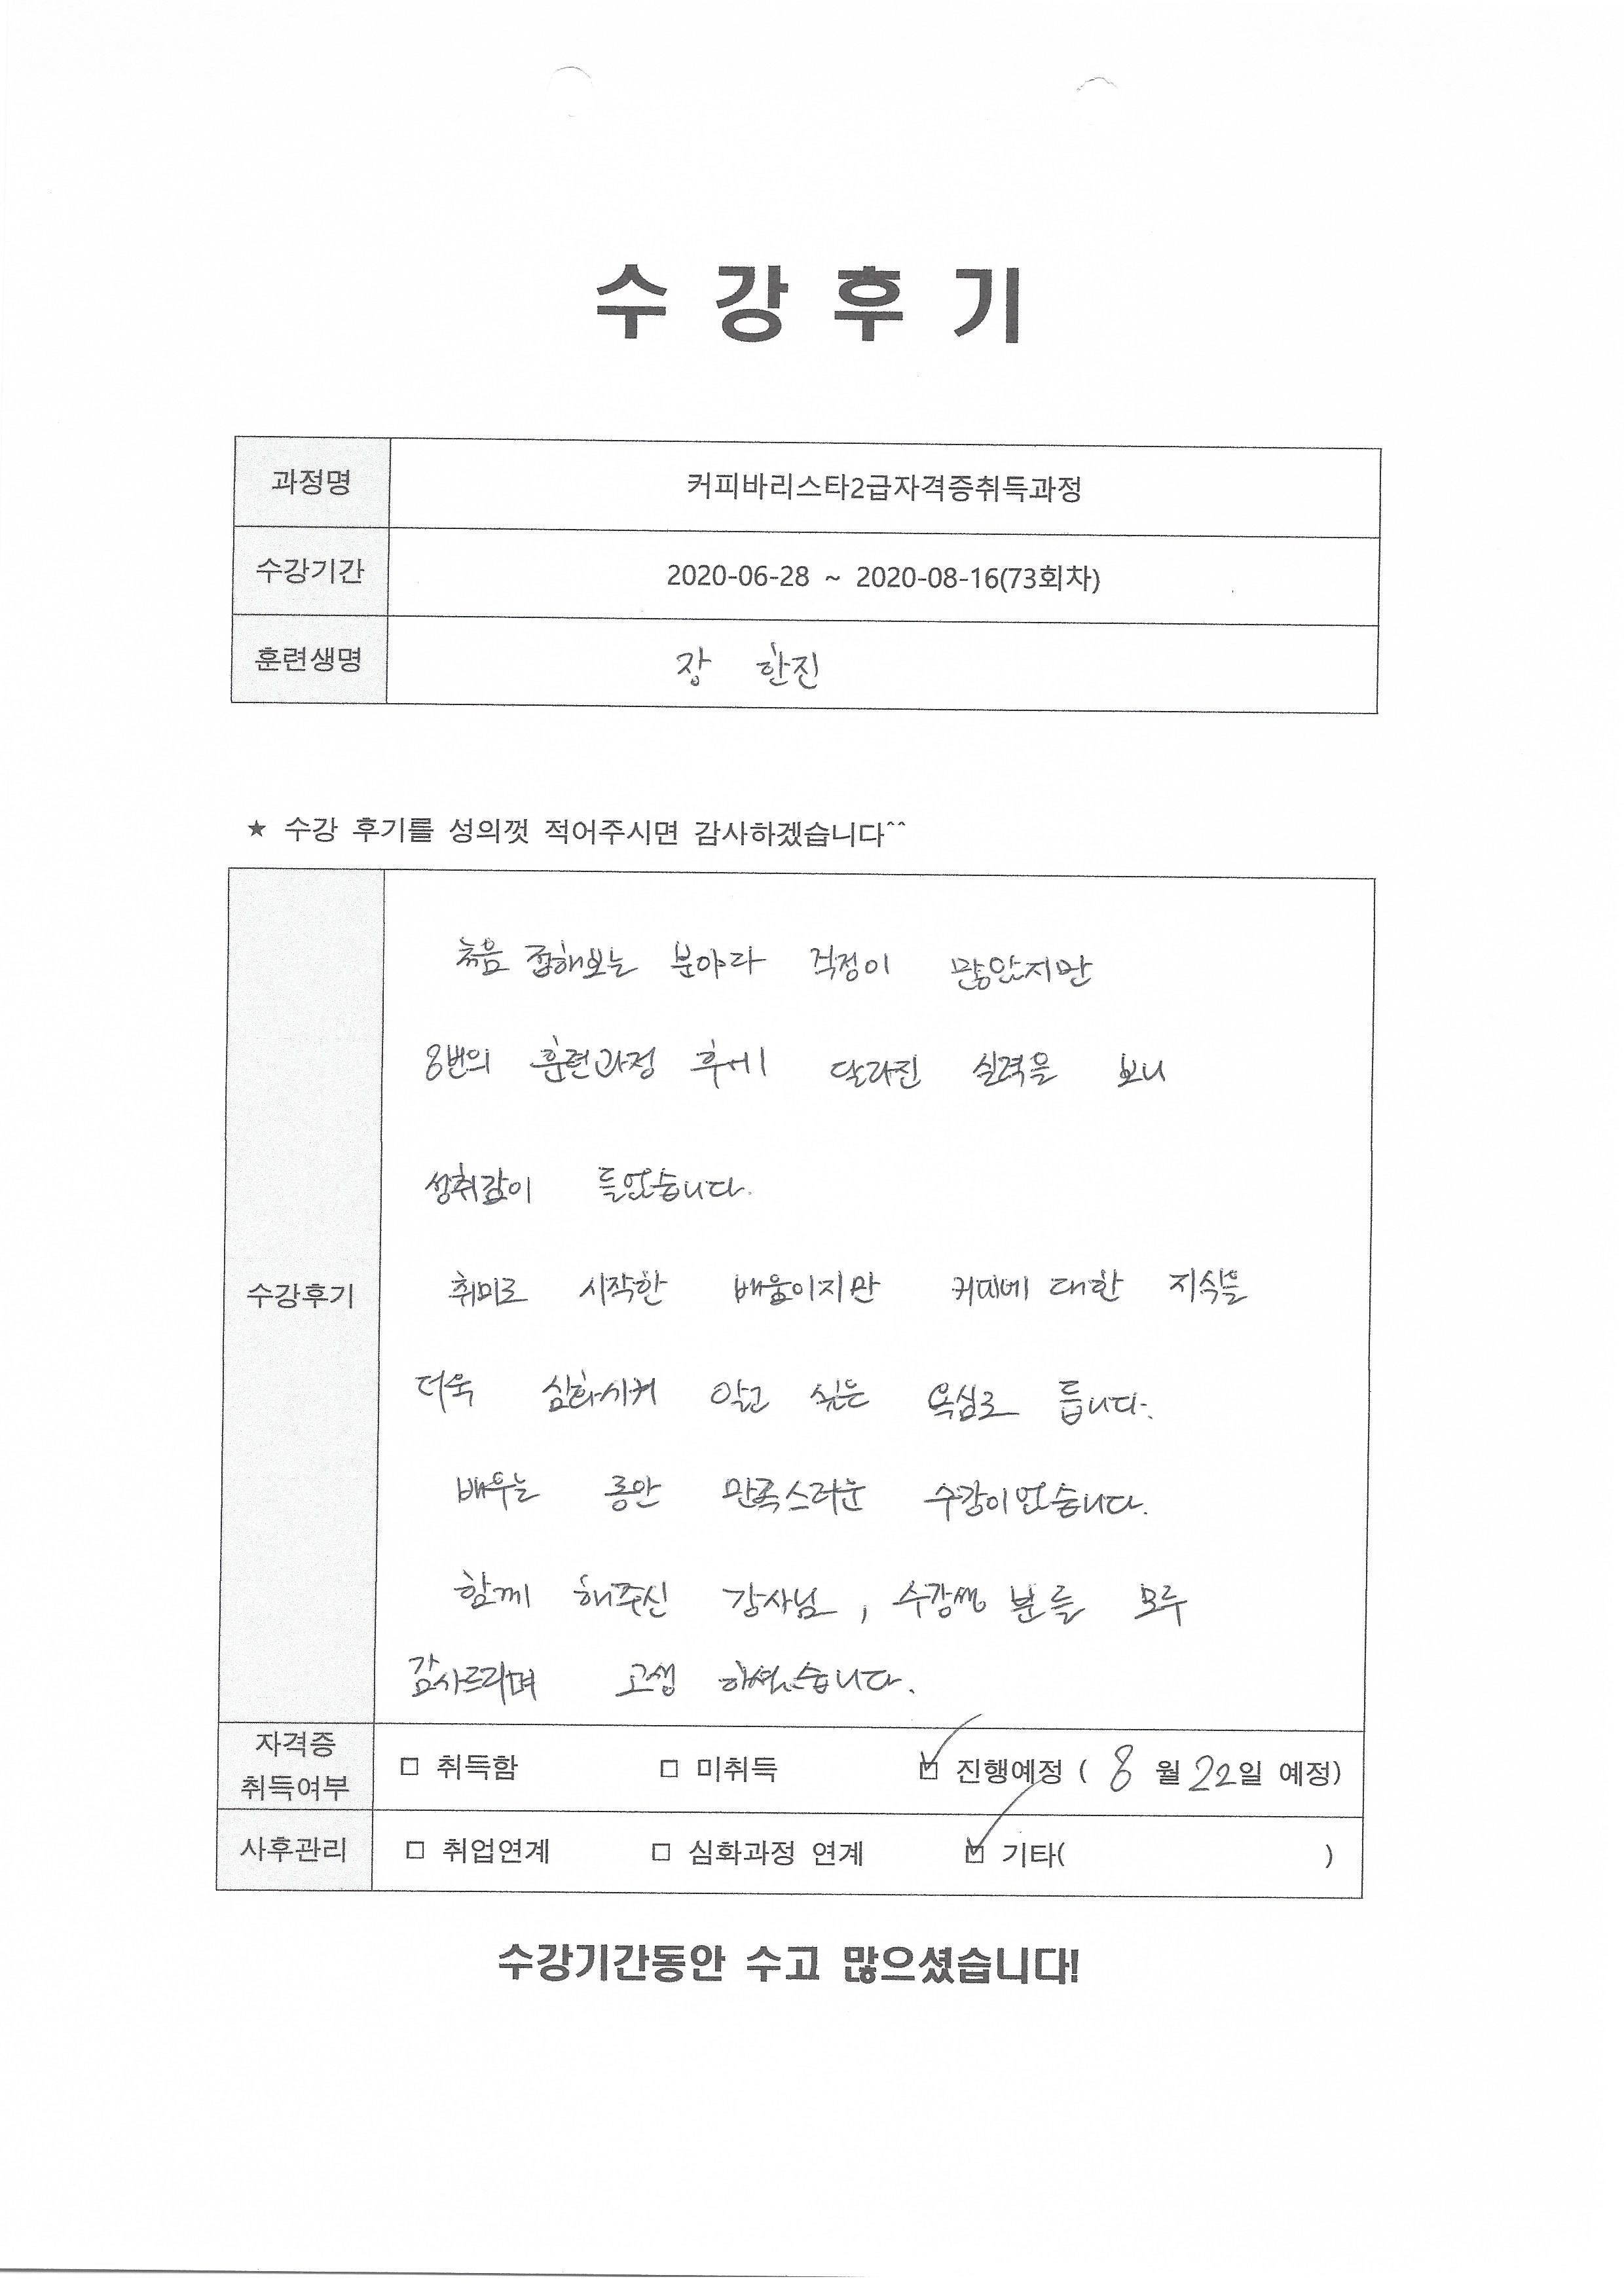 수 강 후 기
과정명 커피바리스타2급자격증취득과정
수강기간 2020-06-28 ~ 2020-08-16(73회차)
훈련생명 장 한진
★ 수강 후기를 성의껏 적어주시면 감사하겠습니다^^
수강후기
처음 접해보는 분야라 걱정이 많았지만
8번의 훈련과정 후에 달라진 실력을 보니
성취감이 들었습니다.
취미로 시작한 배움이지만 커피에 대한 지식을
더욱 심화시켜 알고 싶은 욕심도 듭니다.
배우는 동안 만족스러운 수강이었습니다.
함께 해주신 강사님, 수강생 분들 모두
감사드리며 고생 하셨습니다.
자격증 취득여부 □ 취득함 □ 미취득 ☑ 진행예정 ( 8 월 22일 예정)
사후관리 □ 취업연계 □ 심화과정 연계 ☑ 기타( )
수강기간동안 수고 많으셨습니다!